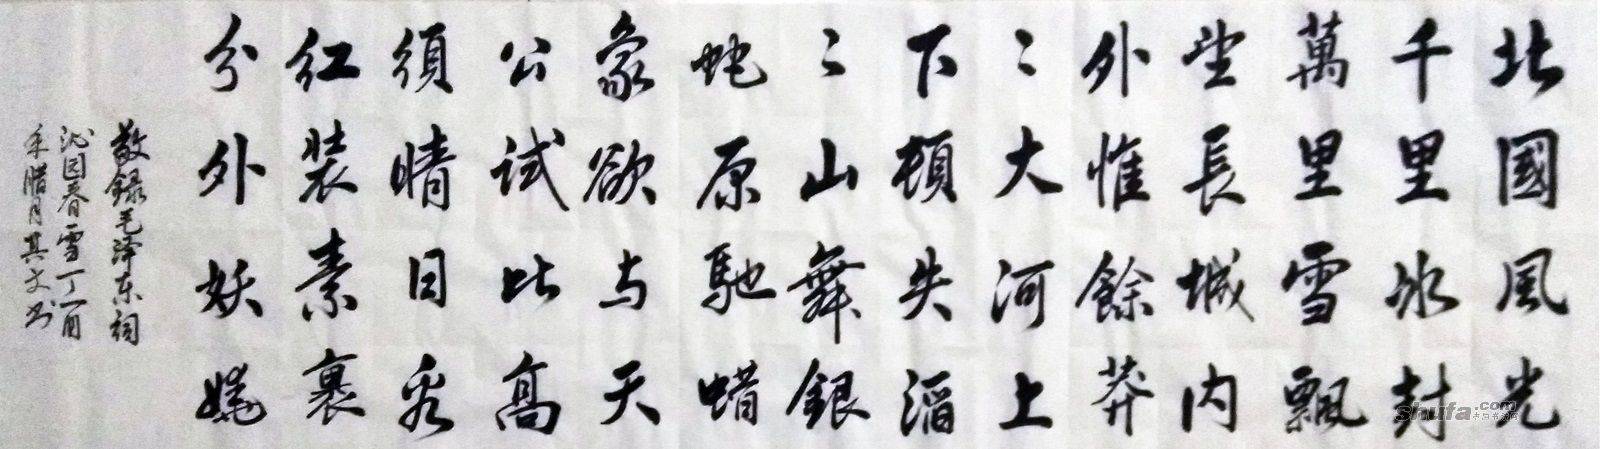 北國風光
千里冰封
萬里雪飄
望長城内
外惟餘莽
〻大河上
下頓失滔
〻山舞銀
蛇原馳蜡
象欲与天
公试比高
須晴日看
红装素裹
分外妖娆
敬録毛泽东词
沁园春雪丁酉
年腊月其文书
shufa.com